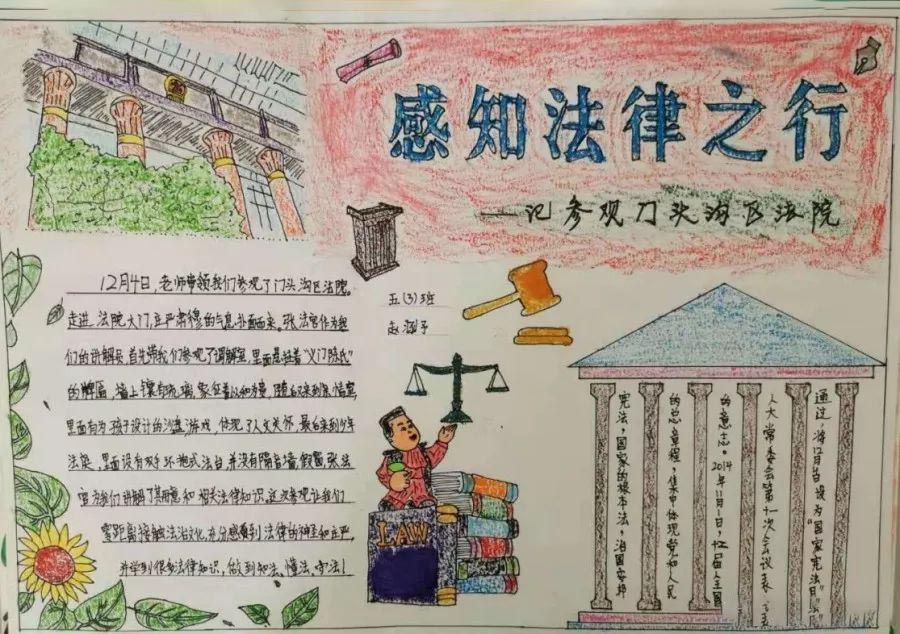 感知法律之行
——记参观门头沟区法院
12月4日，老师带领我们参观了门头沟区法院。
走进法院大门，庄严肃穆的气息扑面而来。张法官作为我
们的讲解员首先带我们参观了调解室，里面悬挂着“义门陈氏”
的牌匾，墙上镶有玻璃，象征着以和为贵，随后又来到亲情室，
里面有为孩子设计的沙盘游戏，体现了人文关怀，最后来到少年
法庭，里面设有双手环抱式法台，并没有隔音墙，假窗，张法
官为我们讲解了其用意和相关法律知识，这次参观让我们
零距离接触法治文化，充分感受到法律的神圣和庄严，
并学到很多法律知识，做到知法、懂法、守法！
五(3)班
赵 予
LAW
宪法，国家的根本法，治国安邦
的总章程，集中体现党和人民
的意志。2014年11月1日，十二届全国
人大常委会第十一次会议表决
通过，将12月4日设为“国家宪法日”